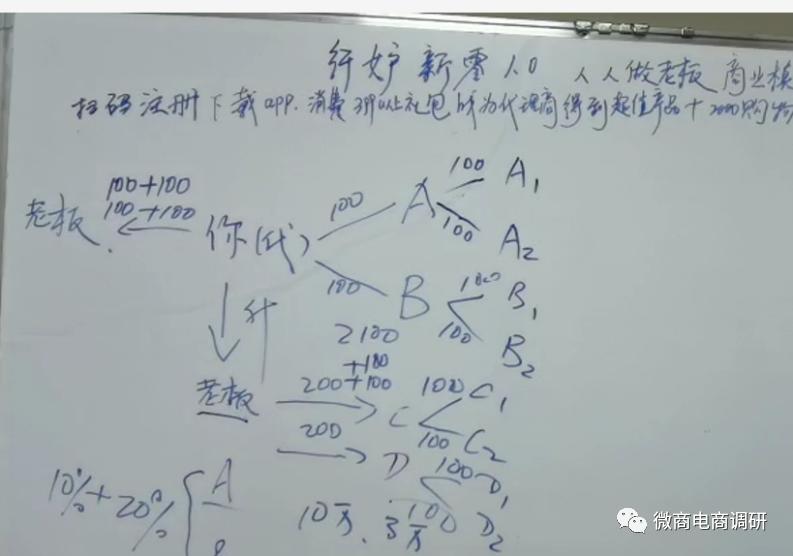 纤妒新零1.0 人人做老板 商业模
扫码注册下载app.消费399以上礼包成为代理商得到超值产品+2000购物
老板
100+100
100+100
你(代)
100
A
100
A1
100
A2
100
B
100
B1
100
B2
2100
升
老板
200
+100
+100
C
100
C1
100
C2
200
D
100
D1
100
D2
10%+20%
A
10万、3万
微商电商调研